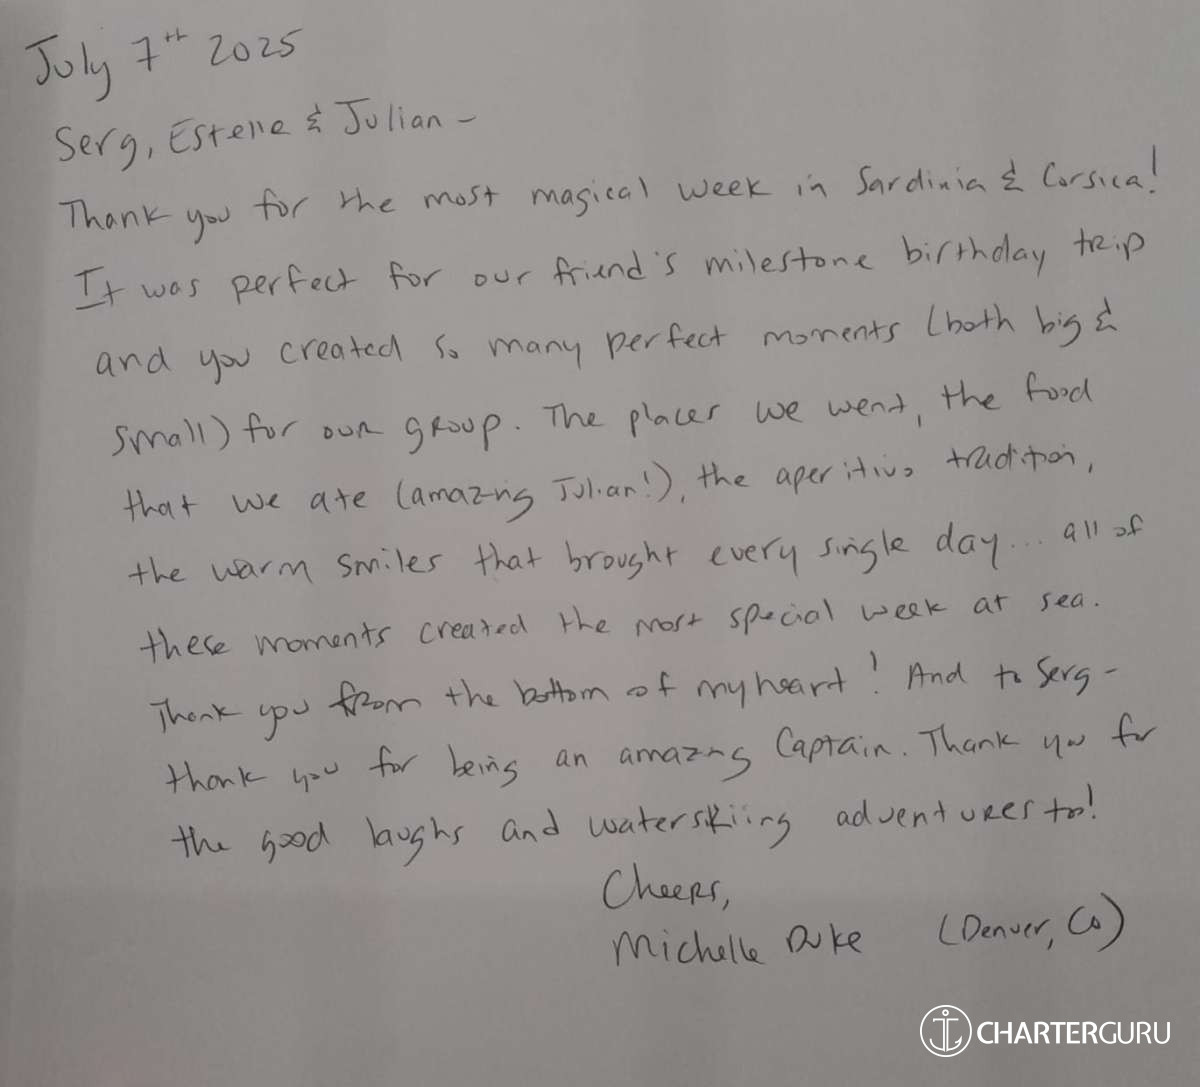 July 7th 2025
Serg, Estelle & Julian -
Thank you for the most magical week in Sardinia & Corsica!
It was perfect for our friend's milestone birthday trip
and you created so many perfect moments (both big &
small) for our group. The places we went, the food
that we ate (amazing Julian!), the aperitivo tradition,
the warm smiles that brought every single day... all of
these moments created the most special week at sea.
Thank you from the bottom of my heart! And to Serg -
thank you for being an amazing Captain. Thank you for
the good laughs and waterskiing adventures too!
Cheers,
Michelle Duke (Denver, Co)
CHARTERGURU